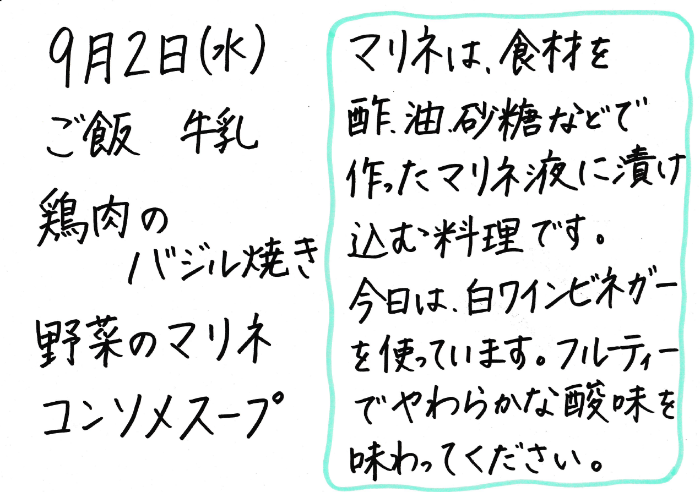 9月2日(水)
ご飯　牛乳
鶏肉の
バジル焼き
野菜のマリネ
コンソメスープ
マリネは、食材を
酢、油、砂糖などで
作ったマリネ液に漬け
込む料理です。
今日は、白ワインビネガー
を使っています。フルーティー
でやわらかな酸味を
味わってください。